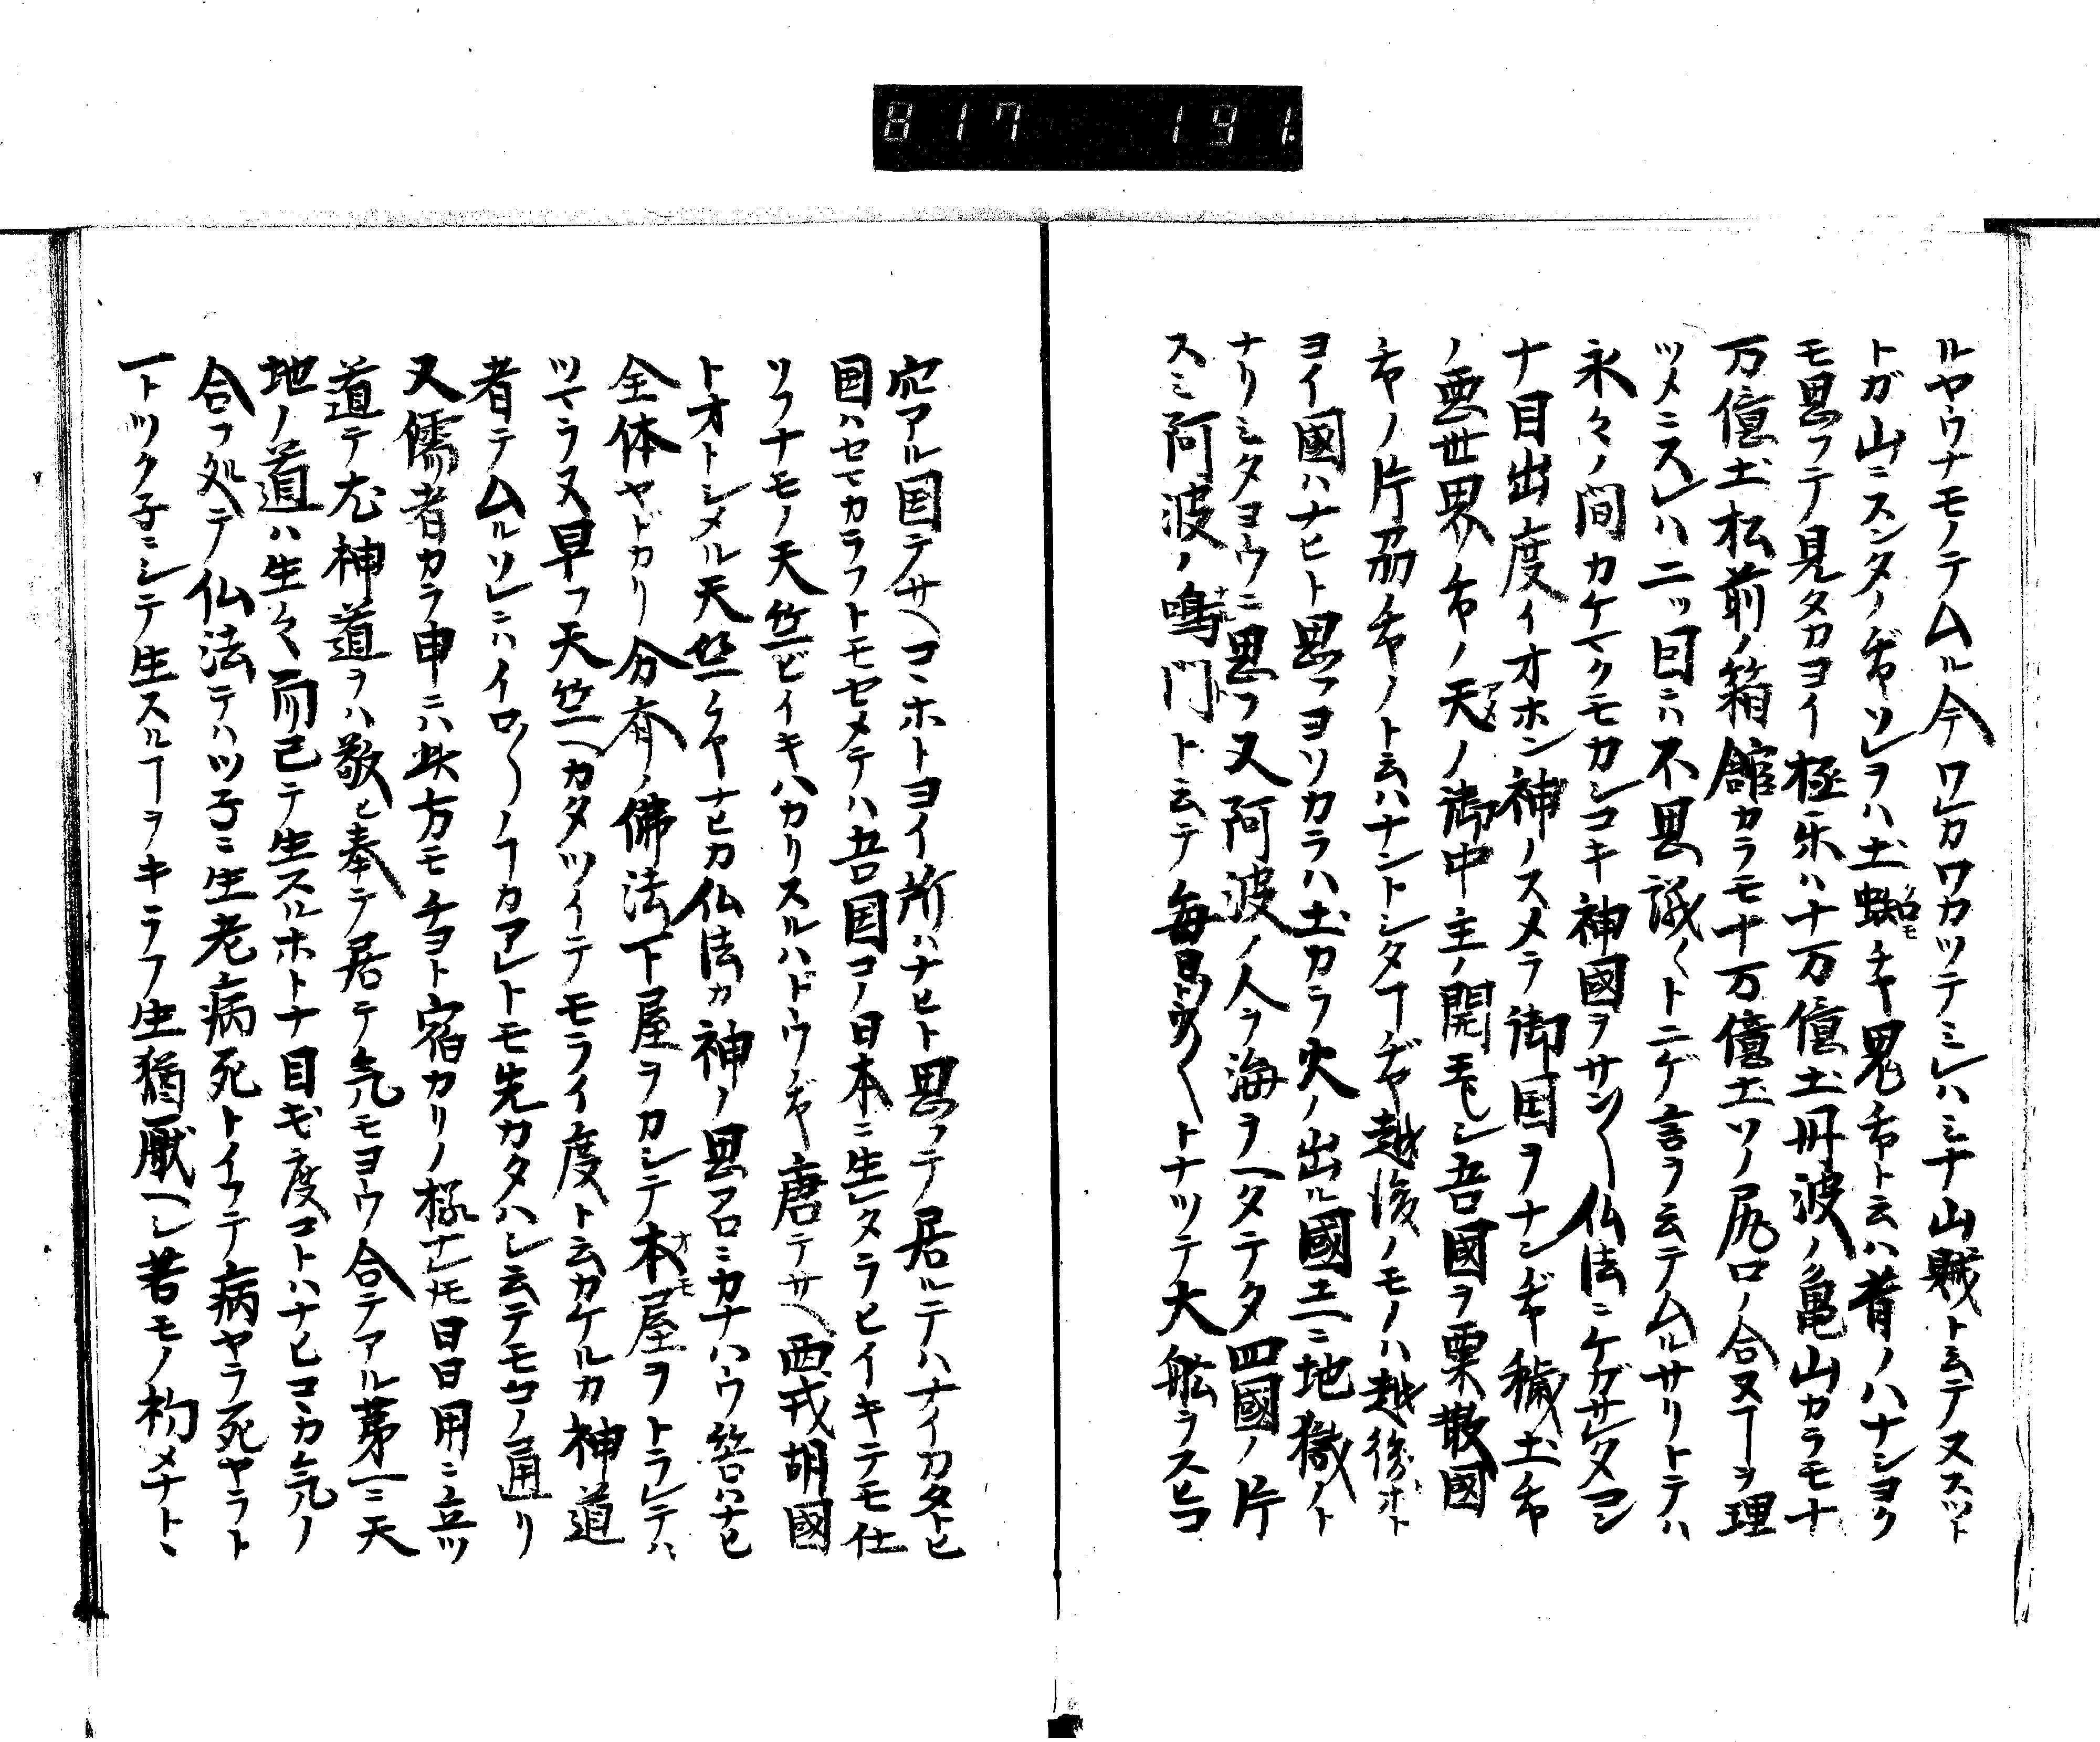 817 191.
ルヤウナモノテムル今ワレカワカツテミレハミナ山賊ト云テヌスット
トガ山ニスンタノヂヤソレヲハ土蜘チヤ鬼ヂヤト云ハ昔ノハナシヨク
クロモ
モ思フテ見タカヨイ極乐ハ十万億土丹波ノ亀山カラモナ
万億土松前ノ箱舘カラモ十万億土ソノ尻口ノ合ヌヿヲ理
ツメニスレハ二ッ目ニハ不思議〱トニゲ言ヲ云テムルサリトテハ
永々ノ間カケマクモカシコキ神國ヲサン〱仏法ニケガサレタヨシ
ナ目出度イオホン神ノスメラ御国ヲナンヂヤ穢土ヂヤ
ノ悪世界ヂヤノ天ノ御中主ノ開モシ吾國ヲ粟散國
アメ
ヂヤノ片刕ヂヤノト云ハナントシタヿヂヤ越後ノモノハ越後ホト
ヨイ國ハナヒト思フヨソカラハ土カラ火ノ出ル國土ニ地獄ノト
ナリシタヨウニ思フ又阿波ノ人ラ海ヲヘタテタ四國ノ片
スミ阿波ノ鳴門ト云テ毎日〱トナツテ大舩ラスヒコ
ナルト
穴アル国テサヘコヽホトヨイ所ハナヒト思フテ居ルテハナイカタトヒ
国ハセマカラフトモセメテハ吾国コノ日本ニ生レタラヒイキテモ仕
ソフナモノ天竺ビイキハカリスルハドウヂヤ唐テサヘ西戎胡國
トオトシメル天竺ヂヤナヒカ仏法カ神ノ思フコロニカナハウ筈ハナヒ
全体ヤドカリ分斉ノ佛法下屋ヲカシテ本屋ヲトラレテハ
オモ
ツマラヌ早フ天竺ヘカタツイテモライ度ト云カケルカ神道
者テムルソレニハイロ〱ノヿカアレトモ先カタハシ云テモコノ通リ
又儒者カラ申ニハ此方モチヨト宿カリノ極ナレトモ日日用ニ立ツ
道テ尤神道ヲハ敬ヒ奉テ居テ气モヨウ合テアル第一ニ天
地ノ道ハ生々而已テ生スルホトナ目出度コトハナヒコヽカ気ノ
合フ処テ仏法テハツ子ニ生老病死トイフテ病ヤラ死ヤラト
一トツク子ニシテ生スルヿヲキラフ生猶厭ヘシ若モノ初メナトヽ